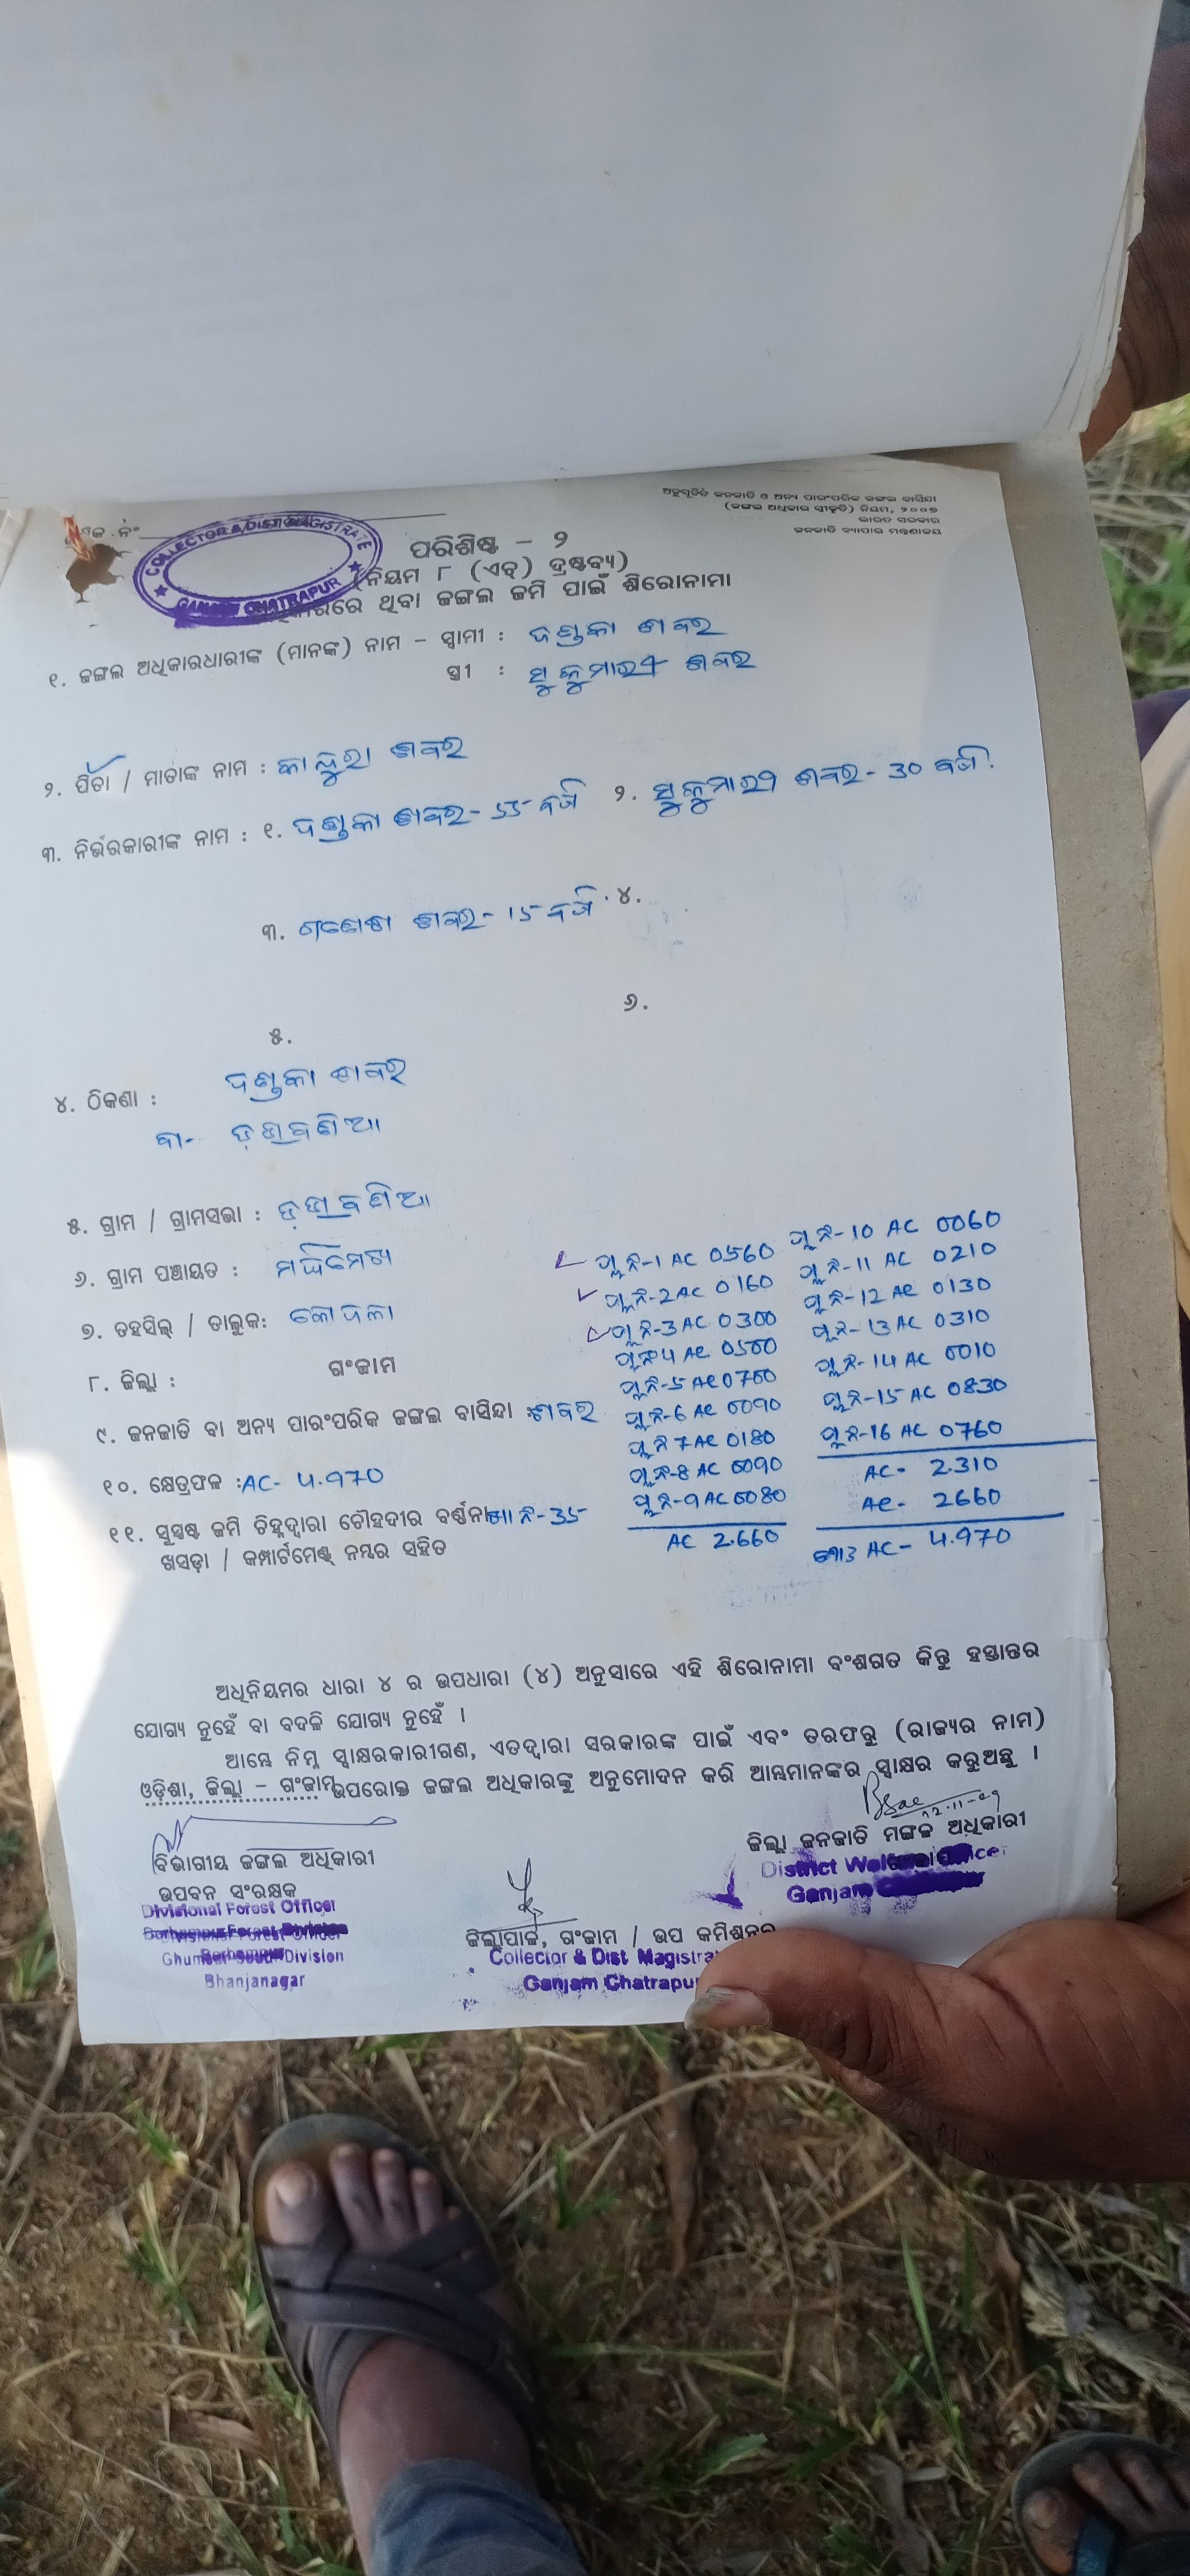 ଅନୁସୂଚିତ ଜନଜାତି ଓ ଅନ୍ୟ ପାରଂପରିକ ଜଙ୍ଗଲ ବାସିନ୍ଦା
(ଜଙ୍ଗଲ ଅଧିକାର ସ୍ୱୀକୃତି) ନିୟମ, ୨୦୦୭
ଭାରତ ସରକାର
ଜନଜାତି ବ୍ୟାପାର ମନ୍ତ୍ରଣାଳୟ
ନଂ
COLLECTOR & DIST MAGISTRATE
GANJAM CHATRAPUR
ପରିଶିଷ୍ଟ - ୨
(ନିୟମ ୮ (ଏଚ୍) ଦ୍ରଷ୍ଟବ୍ୟ)
ଥିବା ଜଙ୍ଗଲ ଜମି ପାଇଁ ଶିରୋନାମା
୧. ଜଙ୍ଗଲ ଅଧିକାରଧାରୀଙ୍କ (ମାନଙ୍କ) ନାମ - ସ୍ୱାମୀ : ଦଣ୍ଡକା ଶବର
ସ୍ତ୍ରୀ : ସୁକୁମାରୀ ଶବର
୨. ପିତା / ମାତାଙ୍କ ନାମ : ଶବର
୩. ନିର୍ଭରକାରୀଙ୍କ ନାମ : ୧. ଦଣ୍ଡକା ଶବର - 55 ବର୍ଷ ୨. ସୁକୁମାରୀ ଶବର - 30 ବର୍ଷ.
୩. ଗଣେଶ ଶବର - 15 ବର୍ଷ ୪.
୫. ୬.
୪. ଠିକଣା : ଦଣ୍ଡକା ଶବର
୫. ଗ୍ରାମ / ଗ୍ରାମସଭା :
୬. ଗ୍ରାମ ପଞ୍ଚାୟତ :
୭. ତହସିଲ୍ / ତାଲୁକ: କୋଦଳା
୮. ଜିଲ୍ଲା : ଗଂଜାମ
୯. ଜନଜାତି ବା ଅନ୍ୟ ପାରଂପରିକ ଜଙ୍ଗଲ ବାସିନ୍ଦା : ଶବର
୧୦. କ୍ଷେତ୍ରଫଳ : AC- 4.970
୧୧. ସୁସ୍ପଷ୍ଟ ଜମି ଚିହ୍ନଦ୍ୱାରା ଚୌହଦୀର ବର୍ଣ୍ଣନା ନଂ-35
ଖସଡ଼ା / କମ୍ପାର୍ଟମେଣ୍ଟ୍ ନମ୍ବର ସହିତ
ପ୍ଲ ନଂ-1 AC 0560
ପ୍ଲ ନଂ-2 AC 0160
ପ୍ଲ ନଂ-3 AC 0300
ପ୍ଲ ନଂ-4 AC 0500
ପ୍ଲ ନଂ-5 AC 0700
ପ୍ଲ ନଂ-6 AC 0090
ପ୍ଲ ନଂ 7 AC 0180
ପ୍ଲ ନଂ-8 AC 0090
ପ୍ଲ ନଂ-9 AC 0080
AC 2.660
ପ୍ଲ ନଂ-10 AC 0060
ପ୍ଲ ନଂ-11 AC 0210
ପ୍ଲ ନଂ-12 AC 0130
ପ୍ଲ ନଂ-13 AC 0310
ପ୍ଲ ନଂ-14 AC 0010
ପ୍ଲ ନଂ-15 AC 0830
ପ୍ଲ ନଂ-16 AC 0760
AC- 2.310
AC- 2660
ମୋଟ AC- 4.970
ଅଧିନିୟମର ଧାରା ୪ ର ଉପଧାରା (୪) ଅନୁସାରେ ଏହି ଶିରୋନାମା ବଂଶଗତ କିନ୍ତୁ ହସ୍ତାନ୍ତର
ଯୋଗ୍ୟ ନୁହେଁ ବା ବଦଳି ଯୋଗ୍ୟ ନୁହେଁ ।
ଆମ୍ଭେ ନିମ୍ନ ସ୍ୱାକ୍ଷରକାରୀଗଣ, ଏତଦ୍ୱାରା ସରକାରଙ୍କ ପାଇଁ ଏବଂ ତରଫରୁ (ରାଜ୍ୟର ନାମ)
ଓଡ଼ିଶା, ଜିଲ୍ଲା - ଗଂଜାମ ଉପରୋକ୍ତ ଜଙ୍ଗଲ ଅଧିକାରଙ୍କୁ ଅନୁମୋଦନ କରି ଆମ୍ଭମାନଙ୍କର ସ୍ୱାକ୍ଷର କରୁଅଛୁ ।
ବିଭାଗୀୟ ଜଙ୍ଗଲ ଅଧିକାରୀ
ଉପବନ ସଂରକ୍ଷକ
Divisional Forest Officer
Ghumsur South Division
Bhanjanagar
ଜିଲ୍ଲାପାଳ, ଗଂଜାମ / ଉପ କମିଶନର
Collector & Dist. Magistra
Ganjam Chatrapu
ଜିଲ୍ଲା ଜନଜାତି ମଙ୍ଗଳ ଅଧିକାରୀ
District
Ganjam